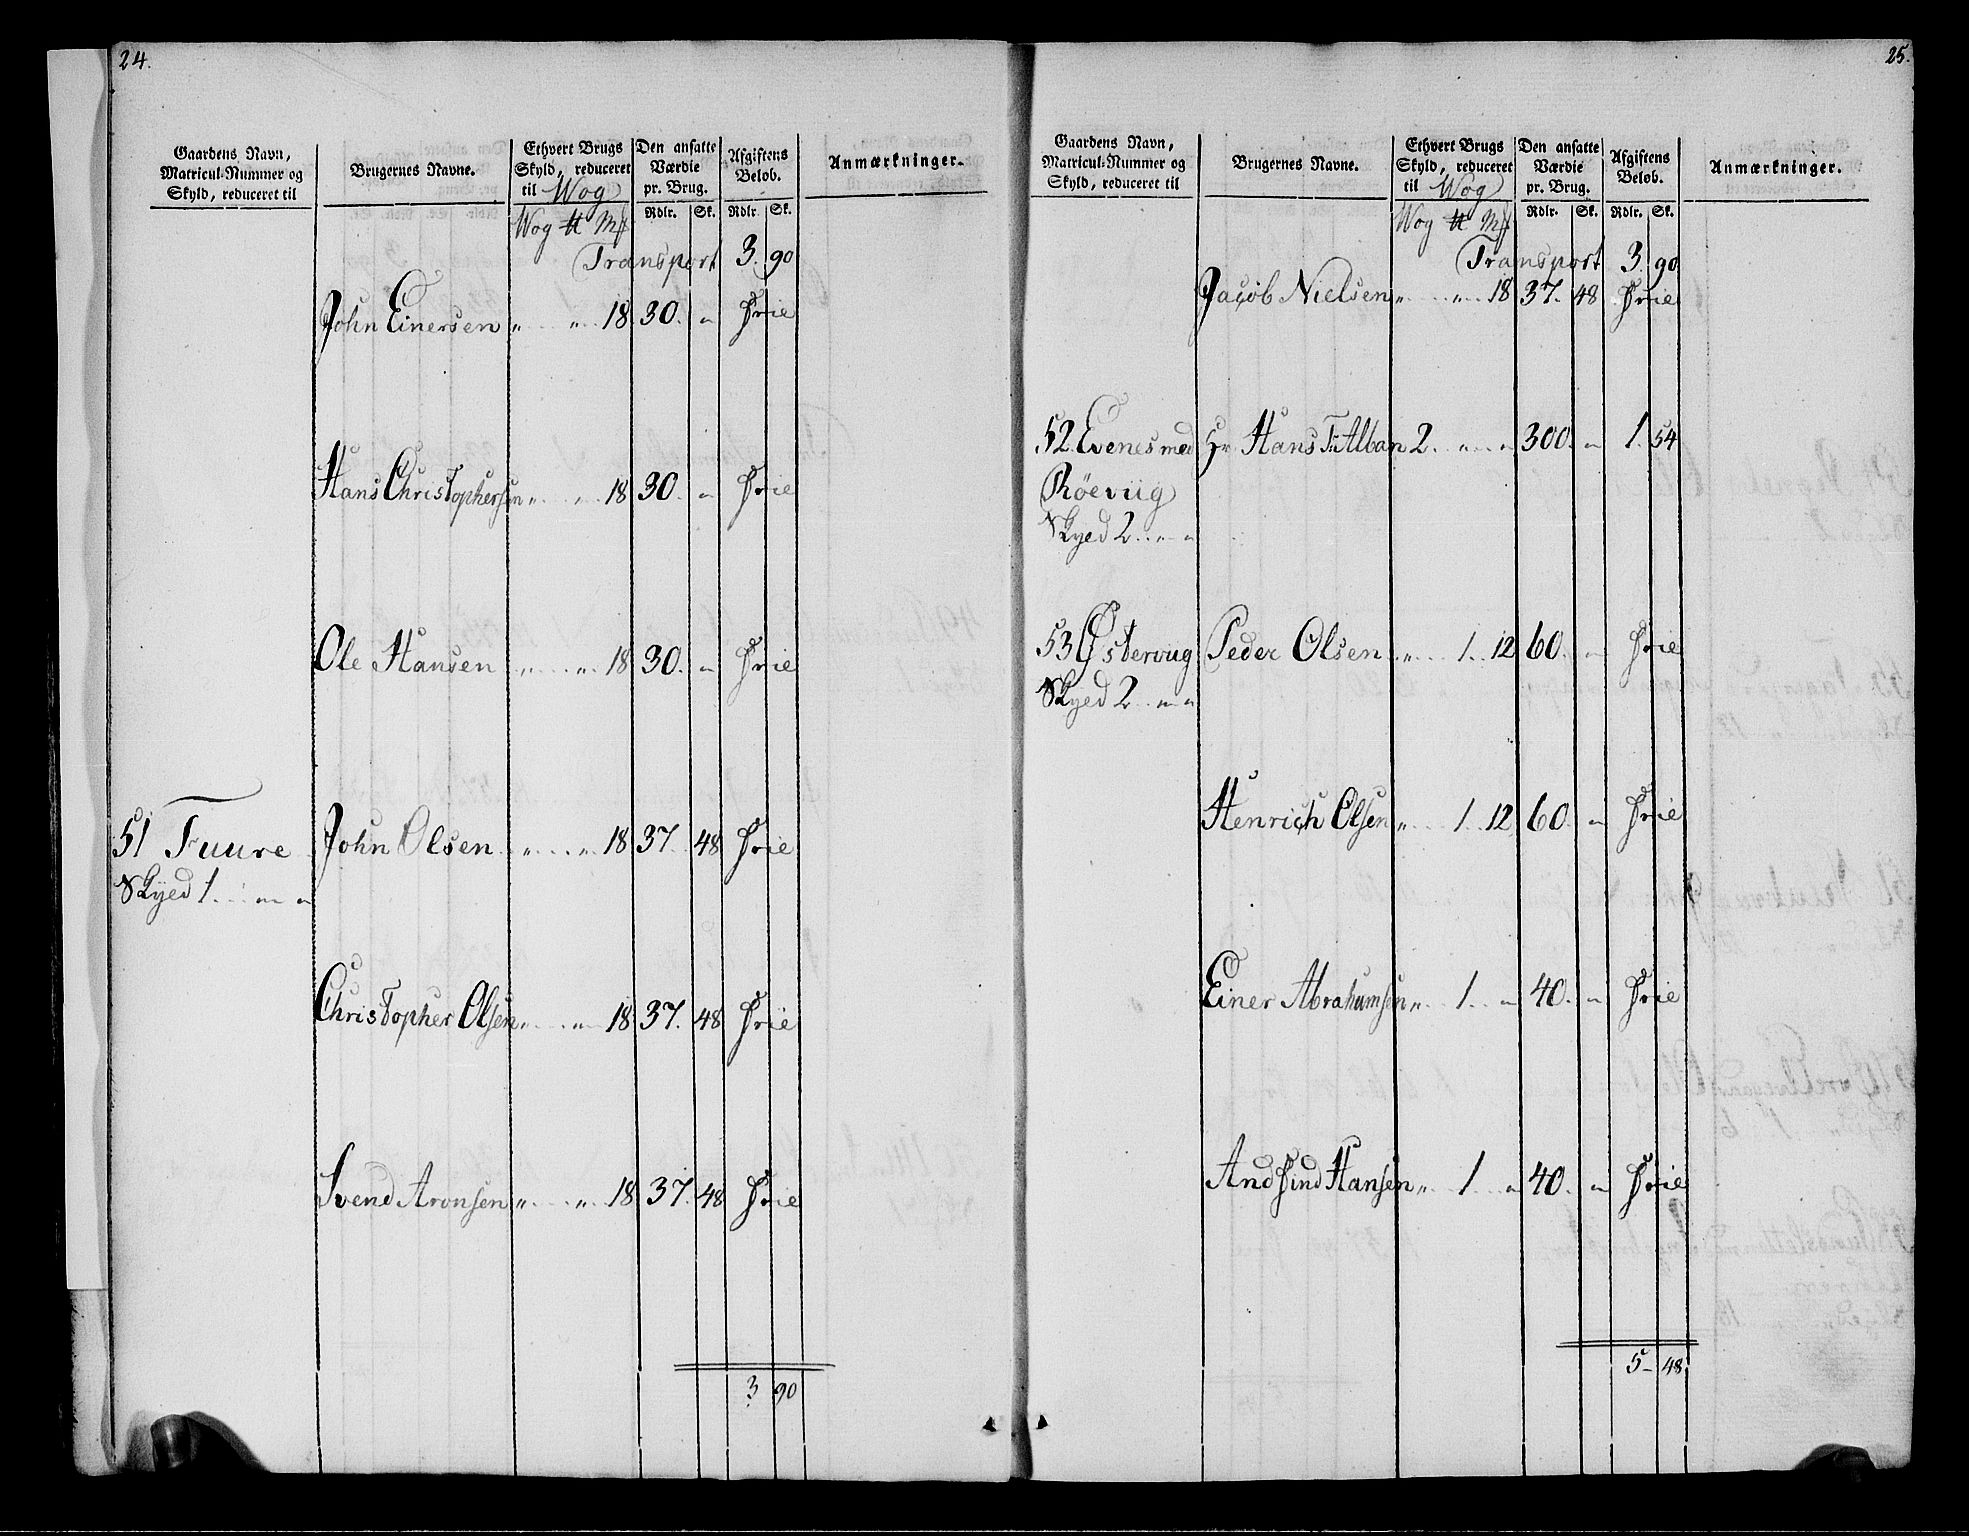 24.
Gaardens Navn, Matricul-Nummer og Skyld, reduceret til
Brugernes Navne.
Ethvert Brugs Skyld, reduceret til Wog
Den ansatte Værdie pr. Brug.
Afgiftens Beløb.
Anmærkninger.
Wog ℔ Mk Rdlr. Sk. Rdlr. Sk.
Transport 3. 90
John Einersen „ „ 18 30. „ Frie
Hans Christophersen „ „ 18 30. „ Frie
Ole Hansen „ „ 18 30. „ Frie
51 Fuure John Olsen „ „ 18 37. 48 Frie
Skyed 1. „ „
Christopher Olsen „ „ 18 37. 48 Frie
Svend Aronsen „ „ 18 37. 48 Frie
3 90
25.
Gaardens Navn, Matricul-Nummer og Skyld, reduceret til
Brugernes Navne.
Ethvert Brugs Skyld, reduceret til Wog
Den ansatte Værdie pr. Brug.
Afgiftens Beløb.
Anmærkninger.
Wog ℔ Mk Rdlr. Sk. Rdlr. Sk.
Transport 3. 90
Jacob Nielsen „ „ 18 37. 48 Frie
52 Evenes med Hr Hans F: Alban 2. „ „ 300. „ 1. 54
Röeviig
Skyed 2 „ „
53 Østerviig Peder Olsen „ 1 12 60. „ Frie
Skyed 2 „ „
Henrich Olsen „ 1 12 60. „ Frie
Einer Abrahamsen „ 1 „ 40. „ Frie
Andfind Hansen „ 1 „ 40. „ Frie
5 - 48